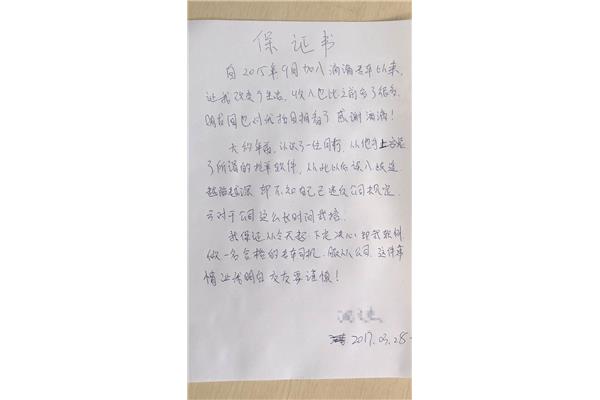 保证书
自2015年9月加入滴滴专车以来,
让我改变了生活,收入也比之前多了很多,
朋友圈也对我括目相看了 感谢滴滴!
大约年前,认识了一位同行,从他手上
了所谓的抢单软件,从此以后误入歧途
越陷越深 却不知自己已违反公司规定,
亏对于公司这么长时间栽培.
我保证从今天起 下定决心 卸载软件
做一名合格的专车司机,服从公司,这件事
情让我明白交友要谨慎!
2017.03.28.